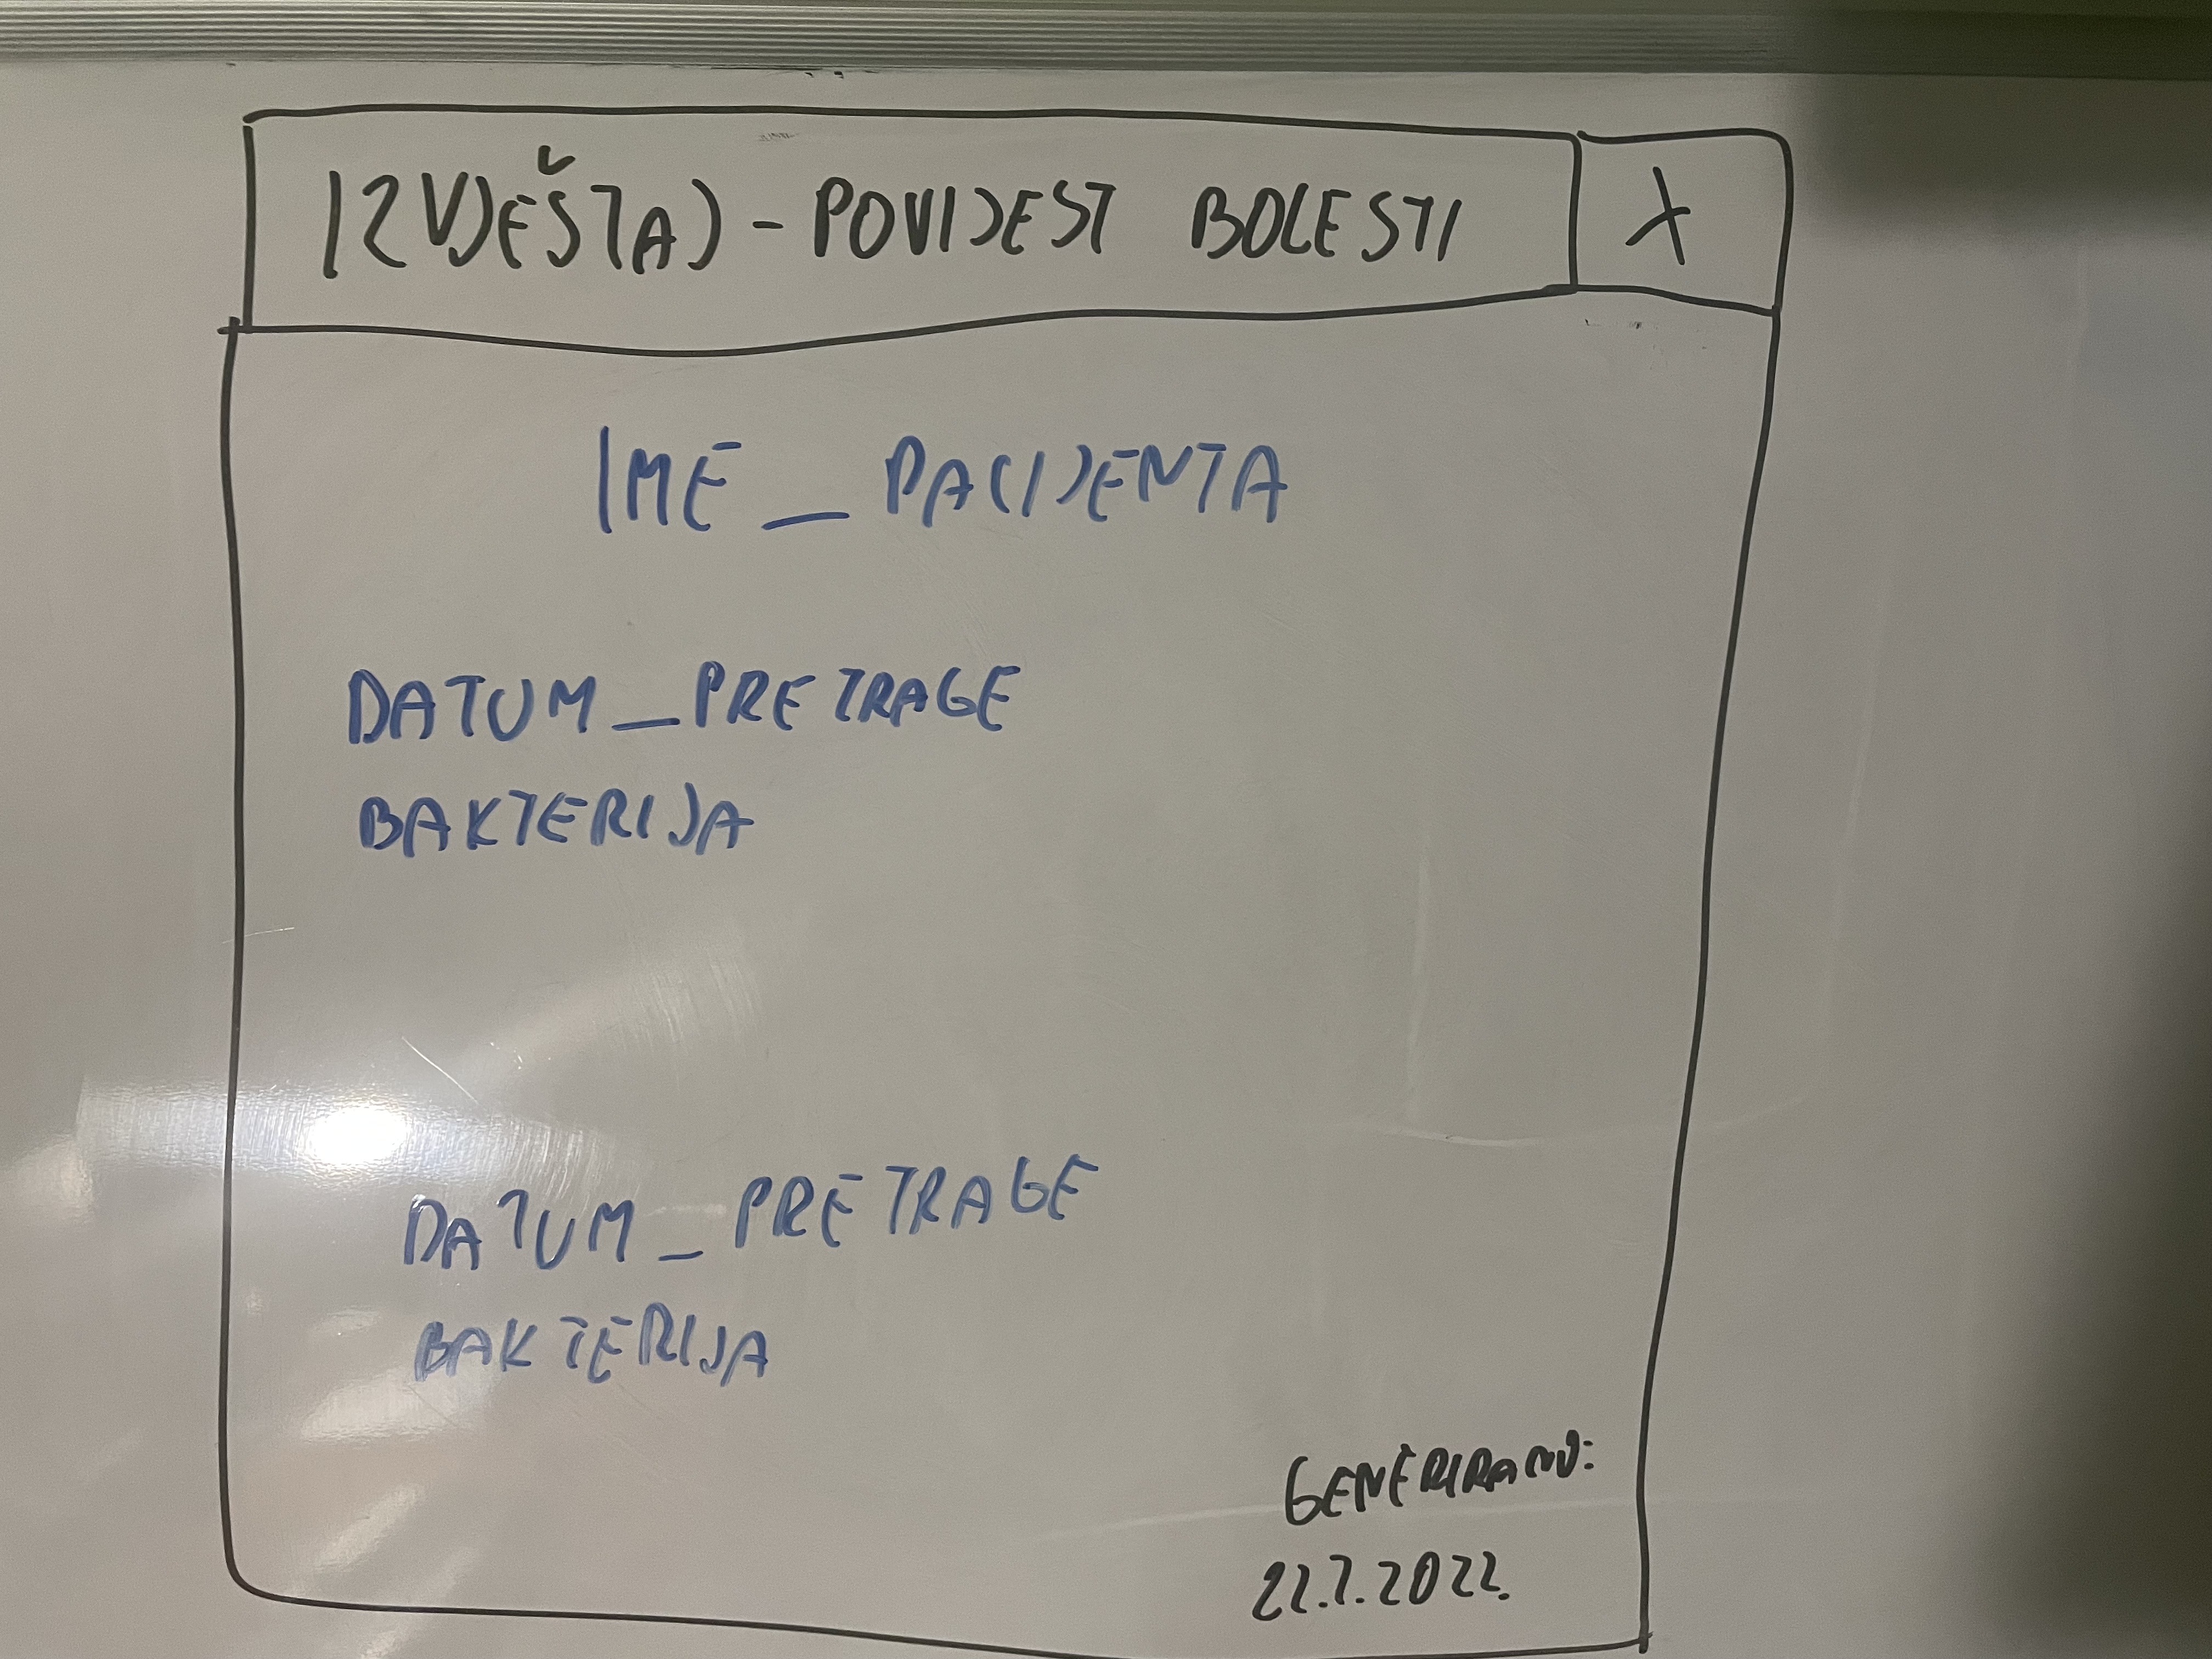 IZVJEŠTAJ - POVIJEST BOLESTI X
IME_PACIJENTA
DATUM_PRETRAGE
BAKTERIJA
DATUM_PRETRAGE
BAKTERIJA
GENERIRANO:
22.7.2022.